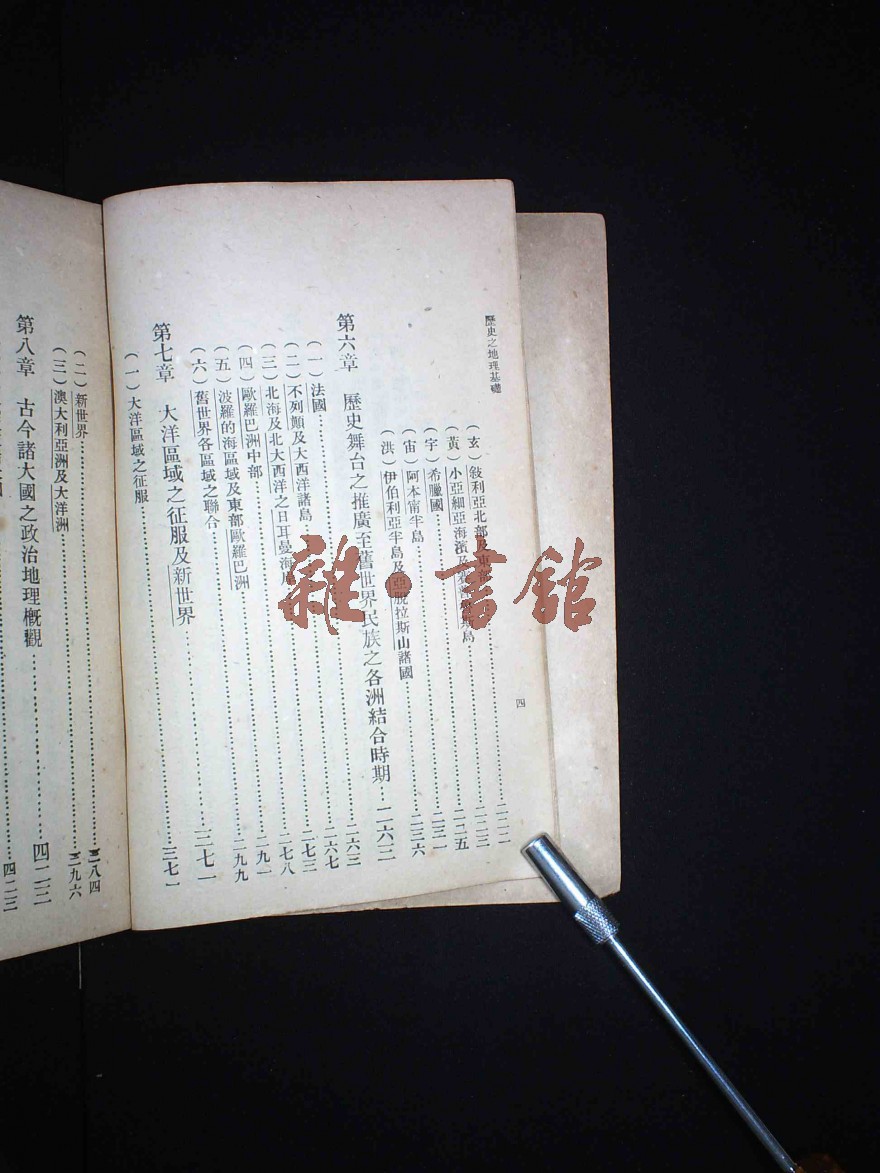 歷史之地理基礎
(玄)敍利亞北部及東部
(黃)小亞細亞海濱及 島……二二三
(宇)希臘國……二二五
(宙)阿本甯半島……二三一
(洪)伊伯利亞半島及亞脫拉斯山諸國……二三六
第六章 歷史舞台之推廣至舊世界民族之各洲結合時期…二六二
(一)法國……二六三
(二)不列顛及大西洋諸島……二六七
(三)北海及北大西洋之日耳曼海……二七三
(四)歐羅巴洲中部……二七八
(五)波羅的海區域及東部歐羅巴洲……二九一
(六)舊世界各區域之聯合……二九九
第七章 大洋區域之征服及新世界……三七一
(一)大洋區域之征服……三七一
四
(二)新世界……三八四
(三)澳大利亞洲及大洋洲……三九六
第八章 古今諸大國之政治地理概觀……四二二
四二三
雜·書館